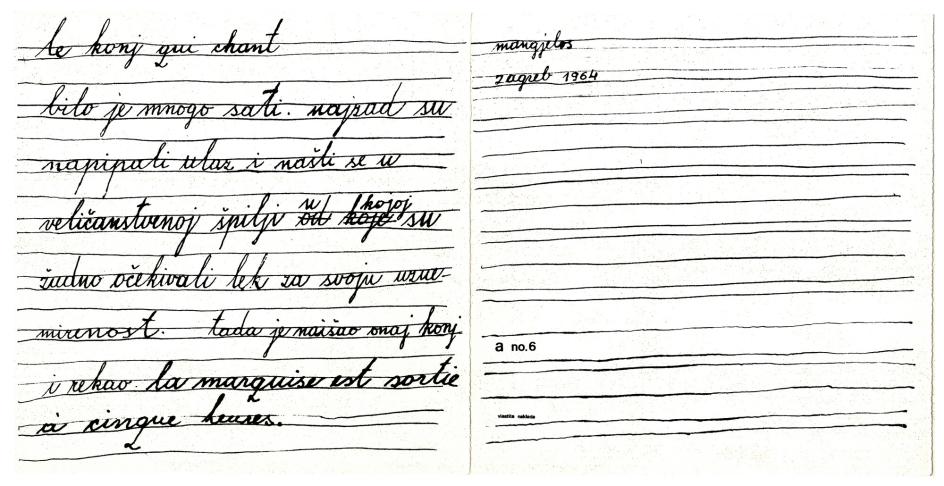 le konj qui chant
bilo je mnogo sati. najzad su
napipali ulaz i našli se u
u kojoj
veličanstvenoj špilji od koje su
žudno očekivali lek za svoju uzne-
mirenost. tada je naišao onaj konj
i rekao. la marquise est sortie
à cinque heures.
mangjelos
zagreb 1964
a no.6
vlastita naklada